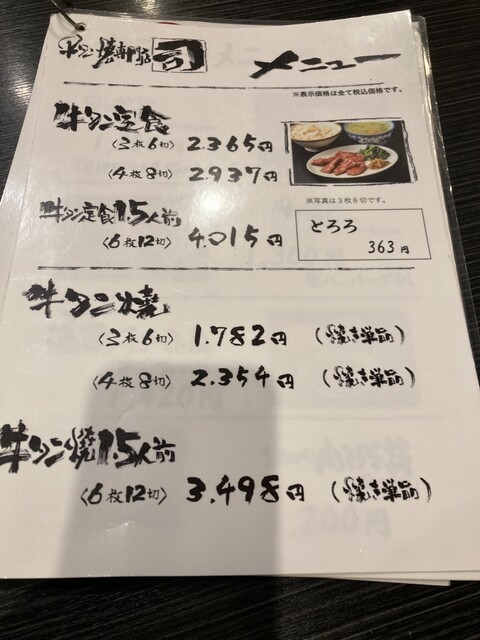 牛たん焼専門店 司 メニュー
※表示価格は全て税込価格です。
牛タン定食
〈3枚6切〉 2.365円
〈4枚8切〉 2.937円
※写真は3枚6切です。
牛タン定食1.5人前
〈6枚12切〉 4.015円
とろろ
363円
牛タン焼
〈3枚6切〉 1.782円 (焼き単品)
〈4枚8切〉 2.354円 (焼き単品)
牛タン焼1.5人前
〈6枚12切〉 3.498円 (焼き単品)